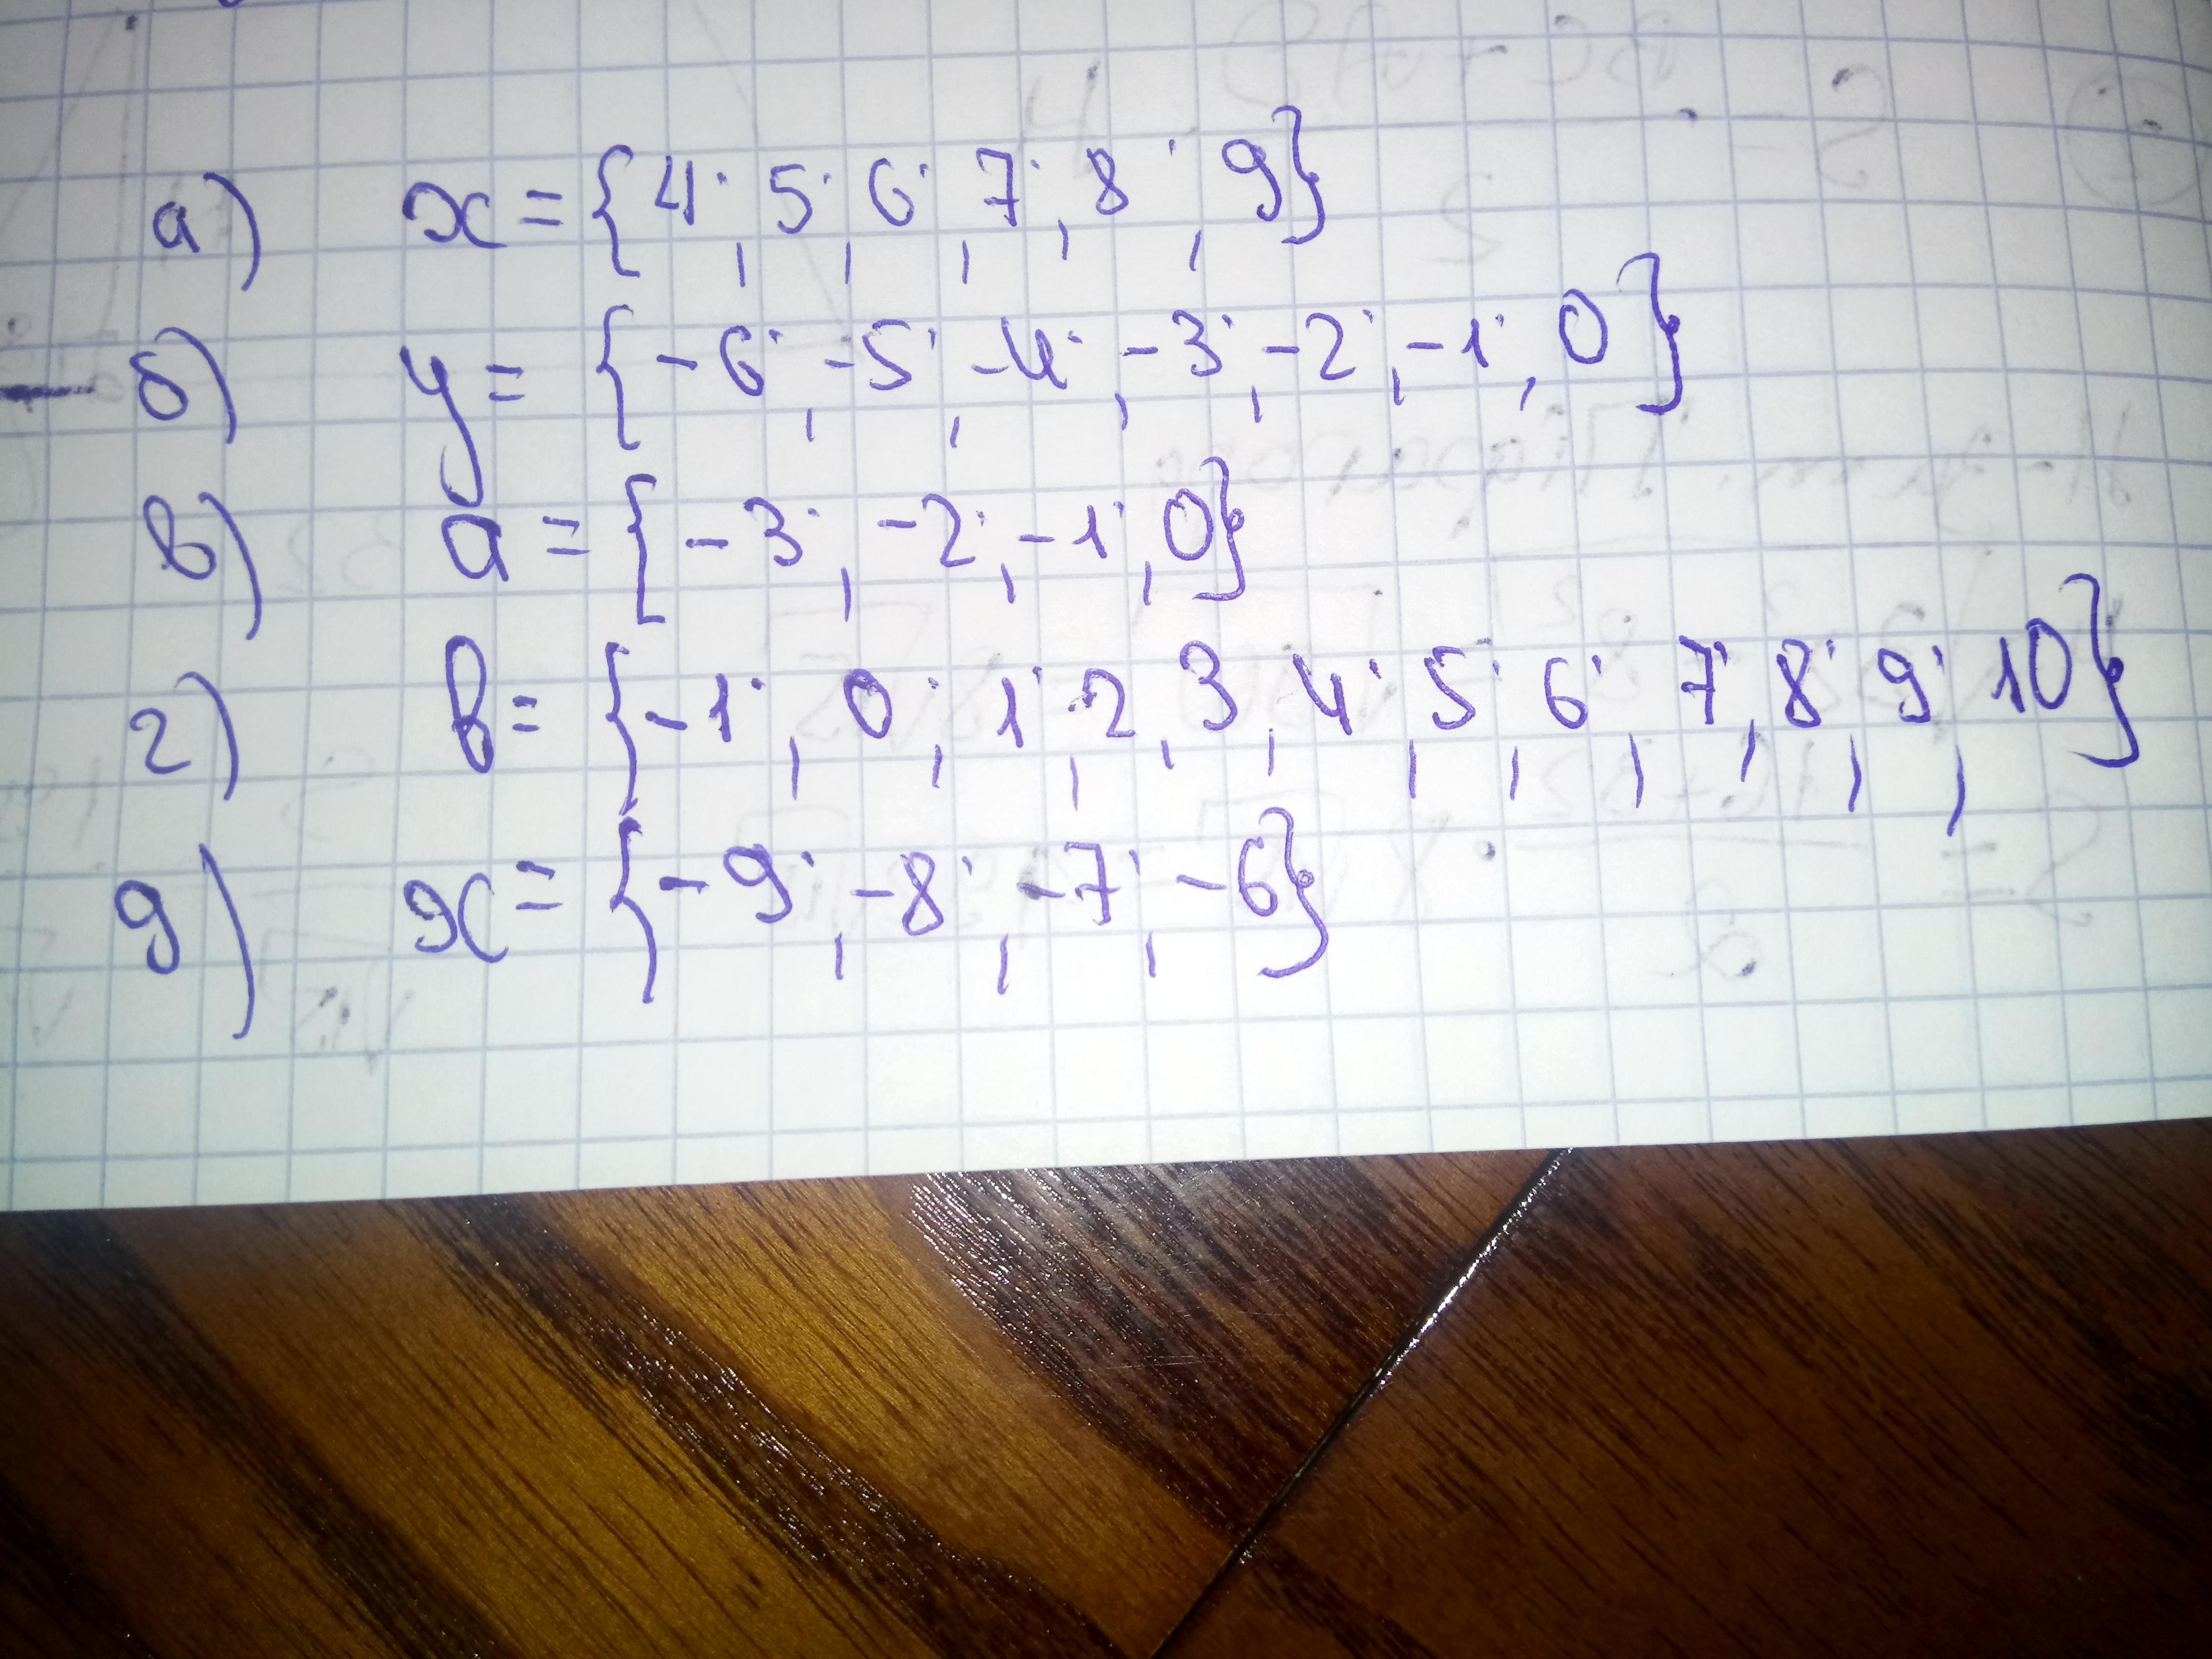 а) x = {4; 5; 6; 7; 8; 9}
б) y = {-6; -5; -4; -3; -2; -1; 0}
в) a = {-3; -2; -1; 0}
г) b = {-1; 0; 1; 2, 3, 4; 5; 6; 7; 8; 9; 10}
д) x = {-9; -8; -7; -6}